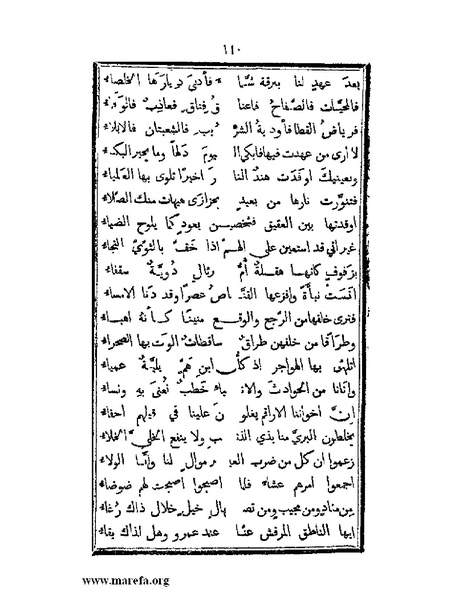 ١١٠
بعد عهد لنا ببرقة شمّا * فأدنى ديارها الخلصاء
فالمحيّات فالصفاح فاعنا ق فتاق فعاذب فالوفاء
فرياض القطا فأودية الشر بب فالشعبتان فالابلاء
لا أرى من عهدت فيها فابكي ال يوم دلهاً وما يحير البكاء
وبعينيك اوقدت هند النا ر اخيرا تلوى بها العلياء
فتنورت نارها من بعيد بخزازى هيهات منك الصلاء
اوقدتها بين العقيق فشخصين بعود كما يلوح الضياء
غير اني قد استعين على الهم اذا خف بالثوي النجاء
بزفوف كأنها هقلة أم رئال دوية سقفاء
آنست نبأة وافزعها القنا ص عصرا وقد دنا الامساء
فترى خلفها من الرجع والوقع منينا كأنه اهباء
وطراقا من خلفهن طراق ساقطات الوت بها الصحراء
اتلهى بها الهواجر اذ كل ابن هم بلية عمياء
وأتانا من الحوادث والأنـ باء خطب نعنى به ونساء
إن اخواننا الاراقم يغلو ن علينا في قيلهم احفاء
يخلطون البريّ منا بذي الذنـ ب ولا ينفع الخلي الخلاء
زعموا ان كل من ضرب العيـ ر موال لنا وأنا الولاء
اجمعوا امرهم عشاء فلما اصبحوا اصبحت لهم ضوضاء
من مناد ومن مجيب ومن تصـ هال خيل خلال ذاك رغاء
ايها الناطق المرقش عنا عند عمرو وهل لذاك بقاء
www.marefa.org